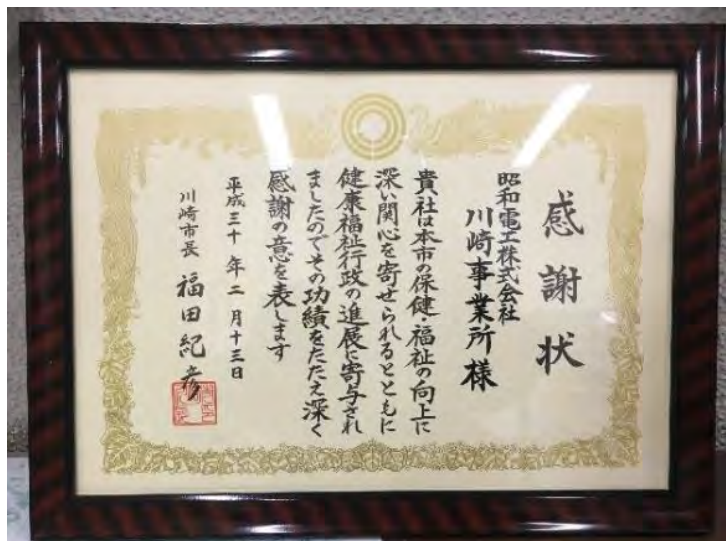 感謝状
昭和電工株式会社
川崎事業所様
貴社は本市の保健・福祉の向上に
深い関心を寄せられるとともに
健康福祉行政の進展に寄与され
ましたのでその功績をたたえ深く
感謝の意を表します
平成三十年二月十三日
川崎市長 福田紀彦